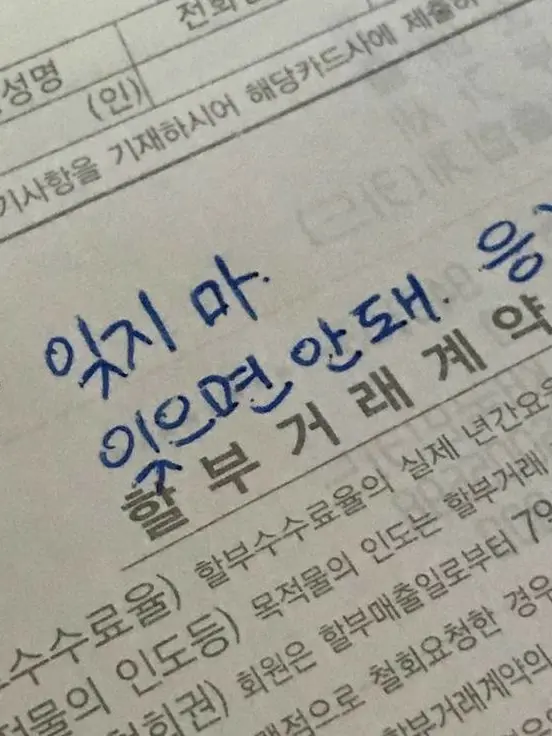 전화
성명
(인)
기사항을 기재하시어 해당카드사에 제출하
잊지 마.
잊으면 안 돼. 응
할부거래계약
수수료율) 할부수수료율의 실제 년간요율
목적물의 인도등) 목적물의 인도는 할부거래
철회권) 회원은 할부매출일로부터 7일
적으로 철회요청한 경우
할부거래계약의